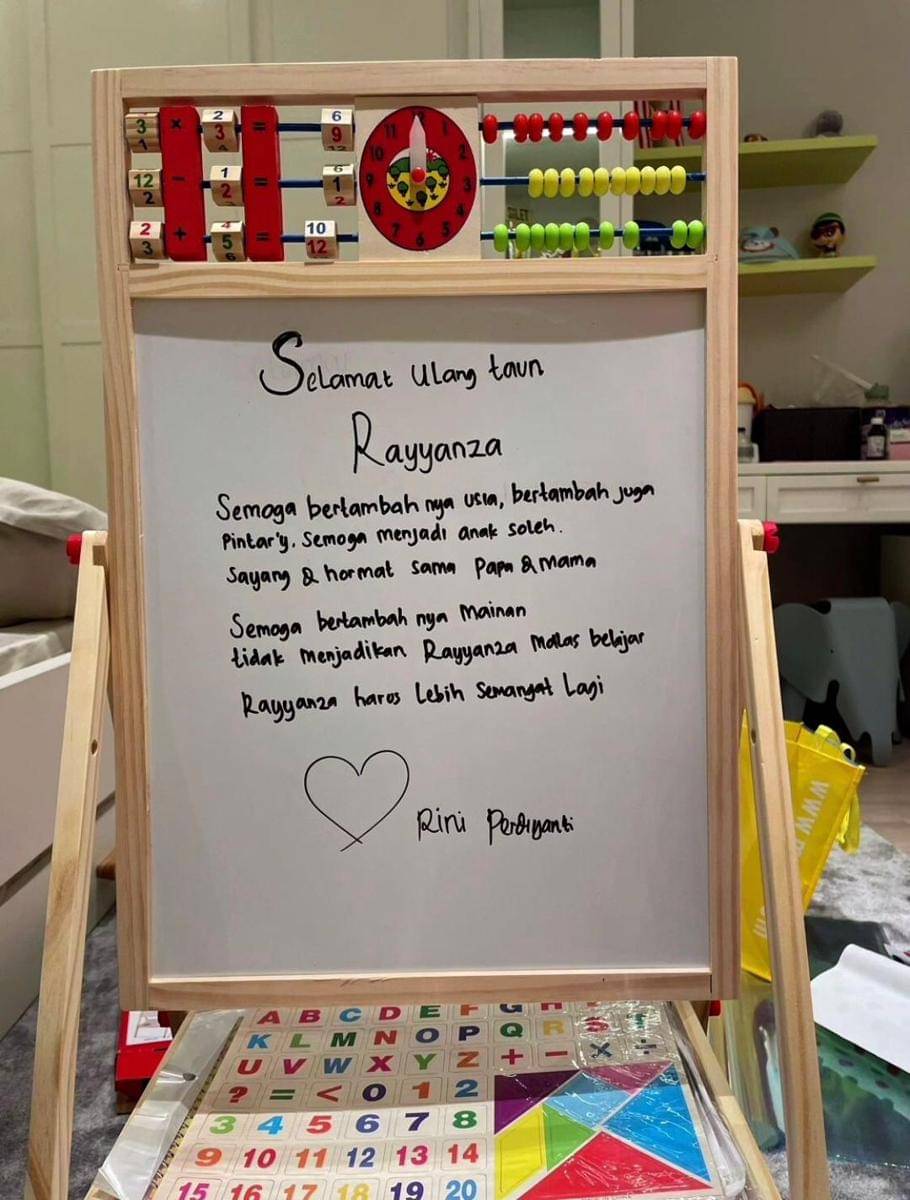 3 × 2 = 6
1 3 9
12 - 1 = 6
2 2 1
2
2 + 4 = 10
3 5 12
6
11 1
10 2
9 3
8 4
7 6 5
Selamat ulang taun
Rayyanza
Semoga bertambah nya usia, bertambah juga
Pintar'y. Semoga menjadi anak soleh.
Sayang & hormat sama Papa & mama
Semoga bertambah nya Mainan
tidak Menjadikan Rayyanza Malas belajar
Rayyanza harus Lebih Semangat Lagi
Rini Perdiyanti
www
A B C D E F G H
K L M N O P Q R S
U V W X Y Z + - × ÷
? = < 0 1 2
3 4 5 6 7 8
9 10 11 12 13 14
15 16 17 18 19 20